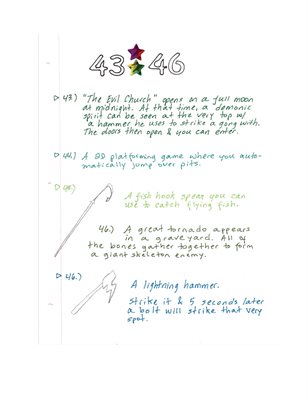 43 46
▷ 43.) "The Evil Church" opens on a full moon
at midnight. At that time, a demonic
spirit can be seen at the very top w/
a hammer he uses to strike a gong with.
The doors then open & you can enter.
▷ 44.) A 2D platforming game where you auto-
matically jump over pits.
▷ 45.)
A fish hook spear you can
use to catch flying fish.
46.) A great tornado appears
in a graveyard. All of
the bones gather together to form
a giant skeleton enemy.
▷ 46.)
A lightning hammer.
Strike it & 5 seconds later
a bolt will strike that very
spot.